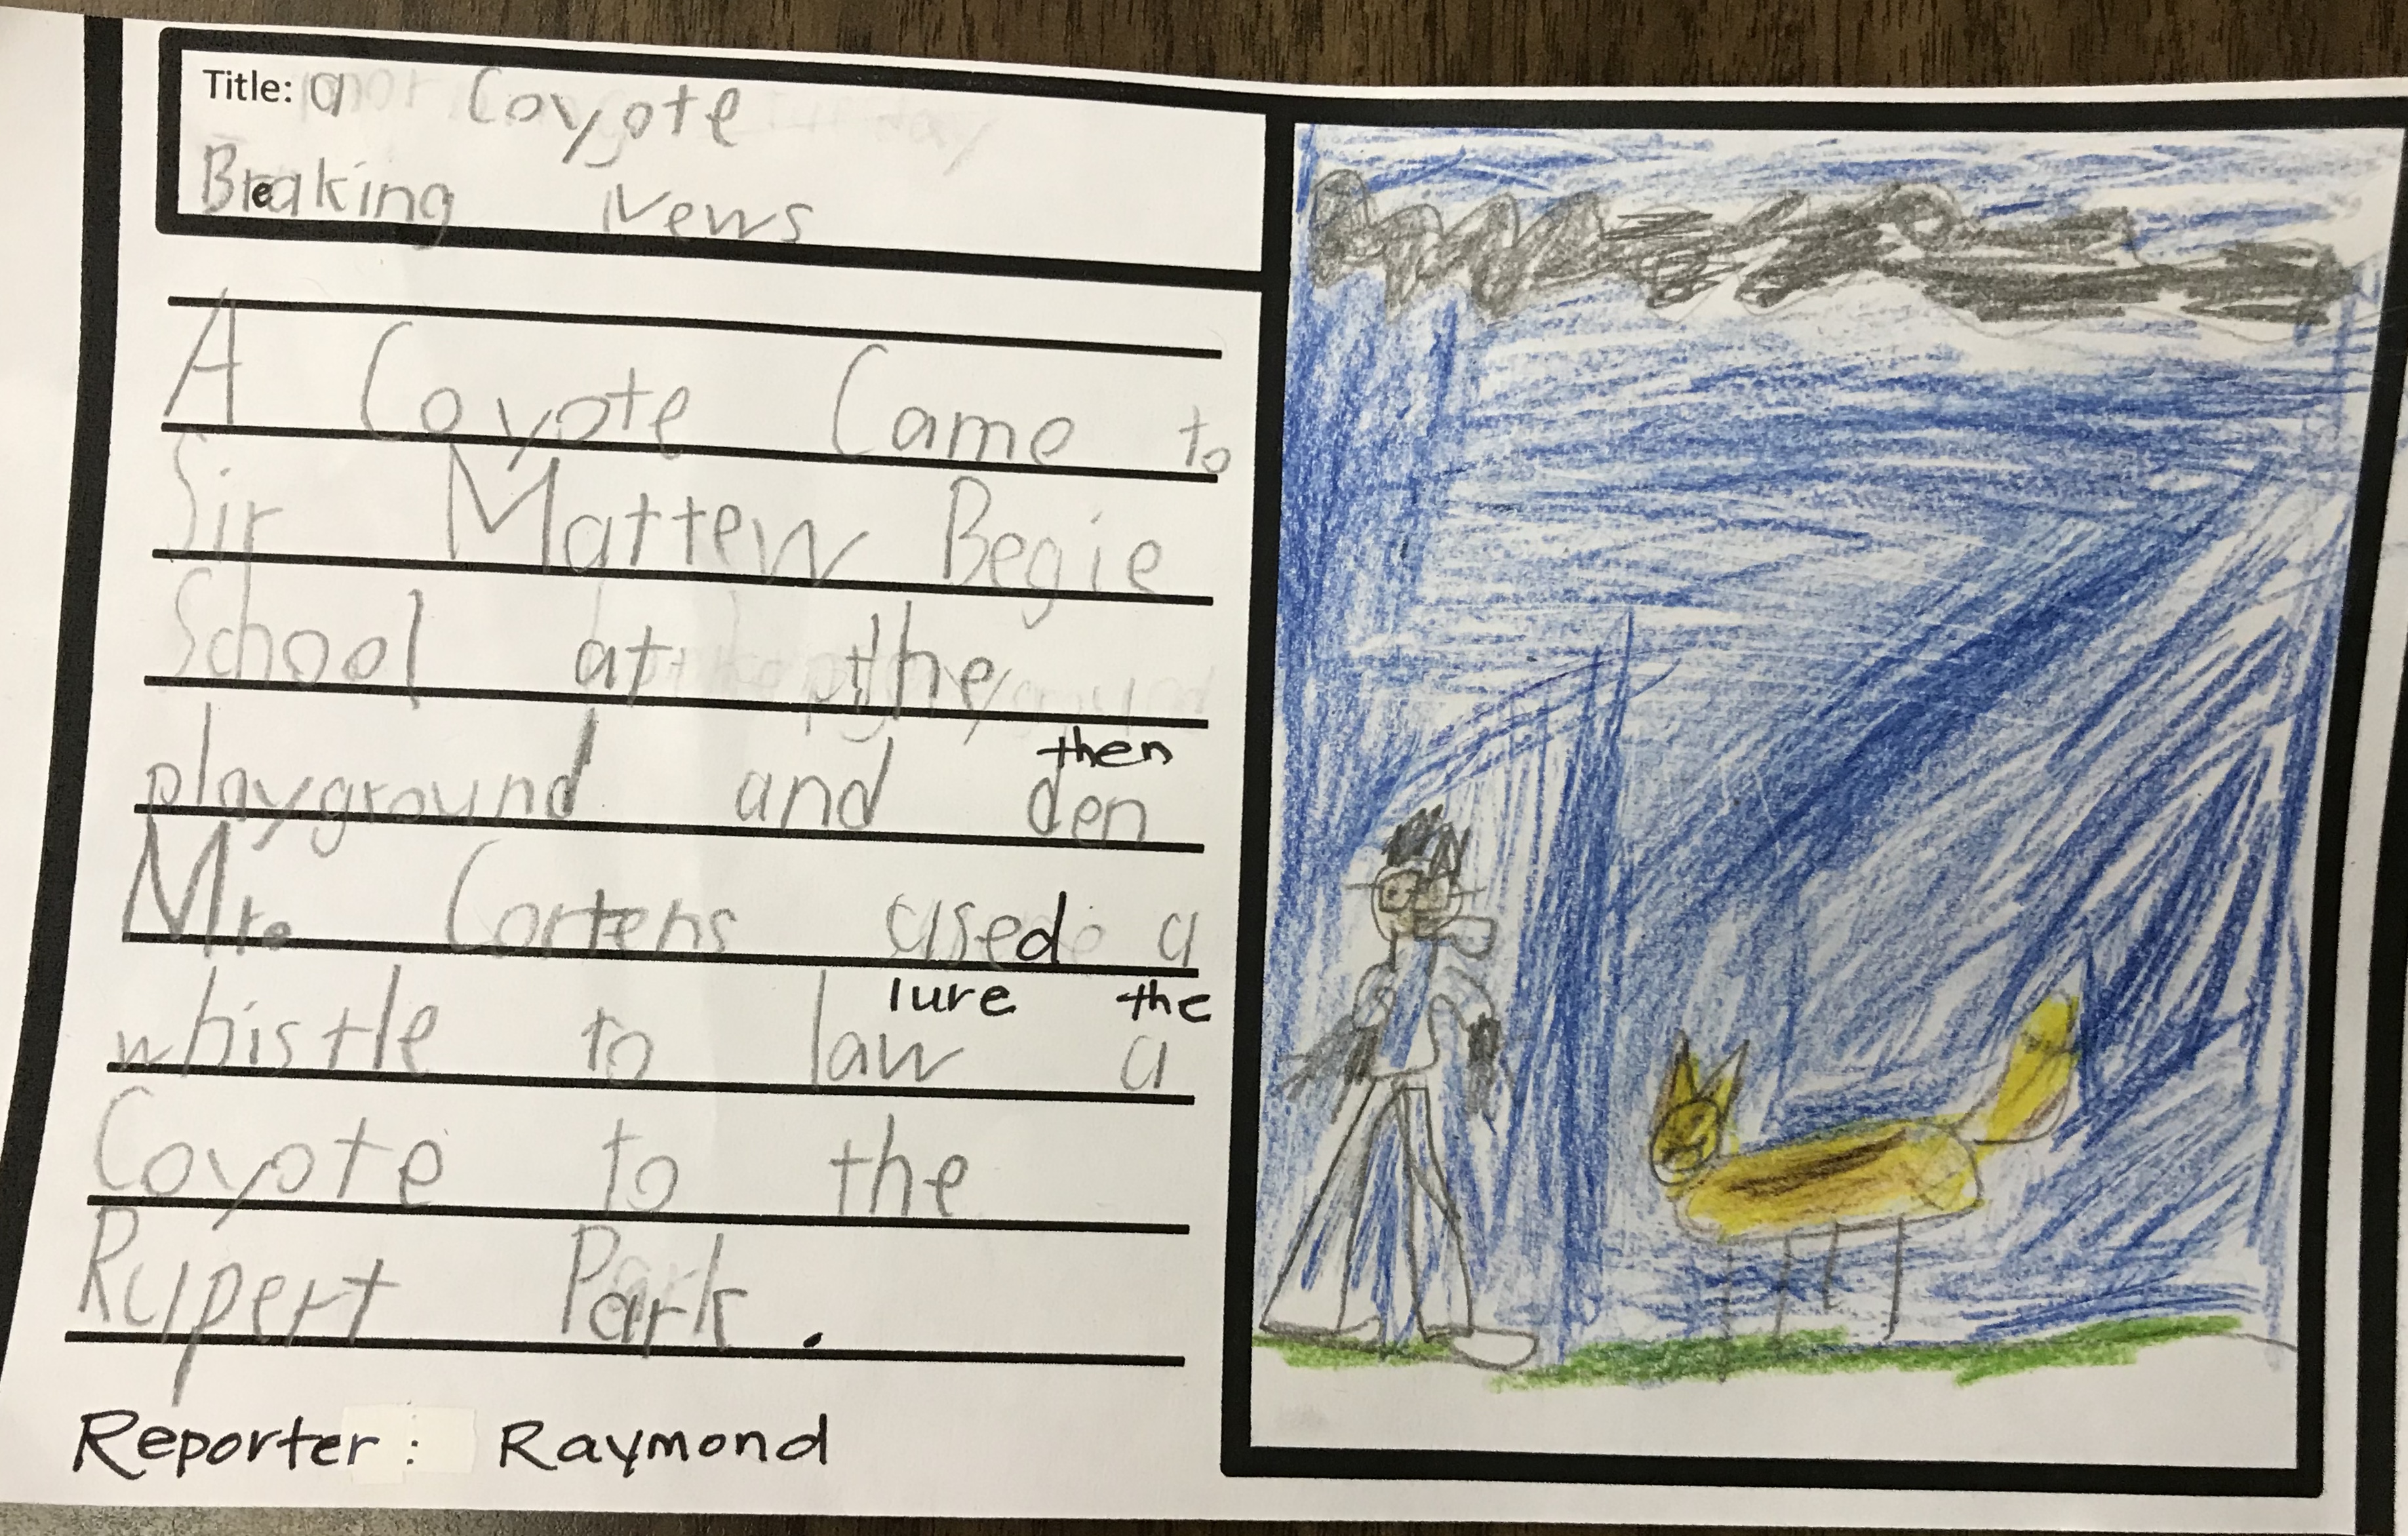 Title: a Coyote
Breaking News
A Coyote Came to
Sir Mattew Begie
School at the
playground and den
then
Mr. Cortens used a
whistle to law a
lure the
Coyote to the
Rupert Park.
Reporter: Raymond